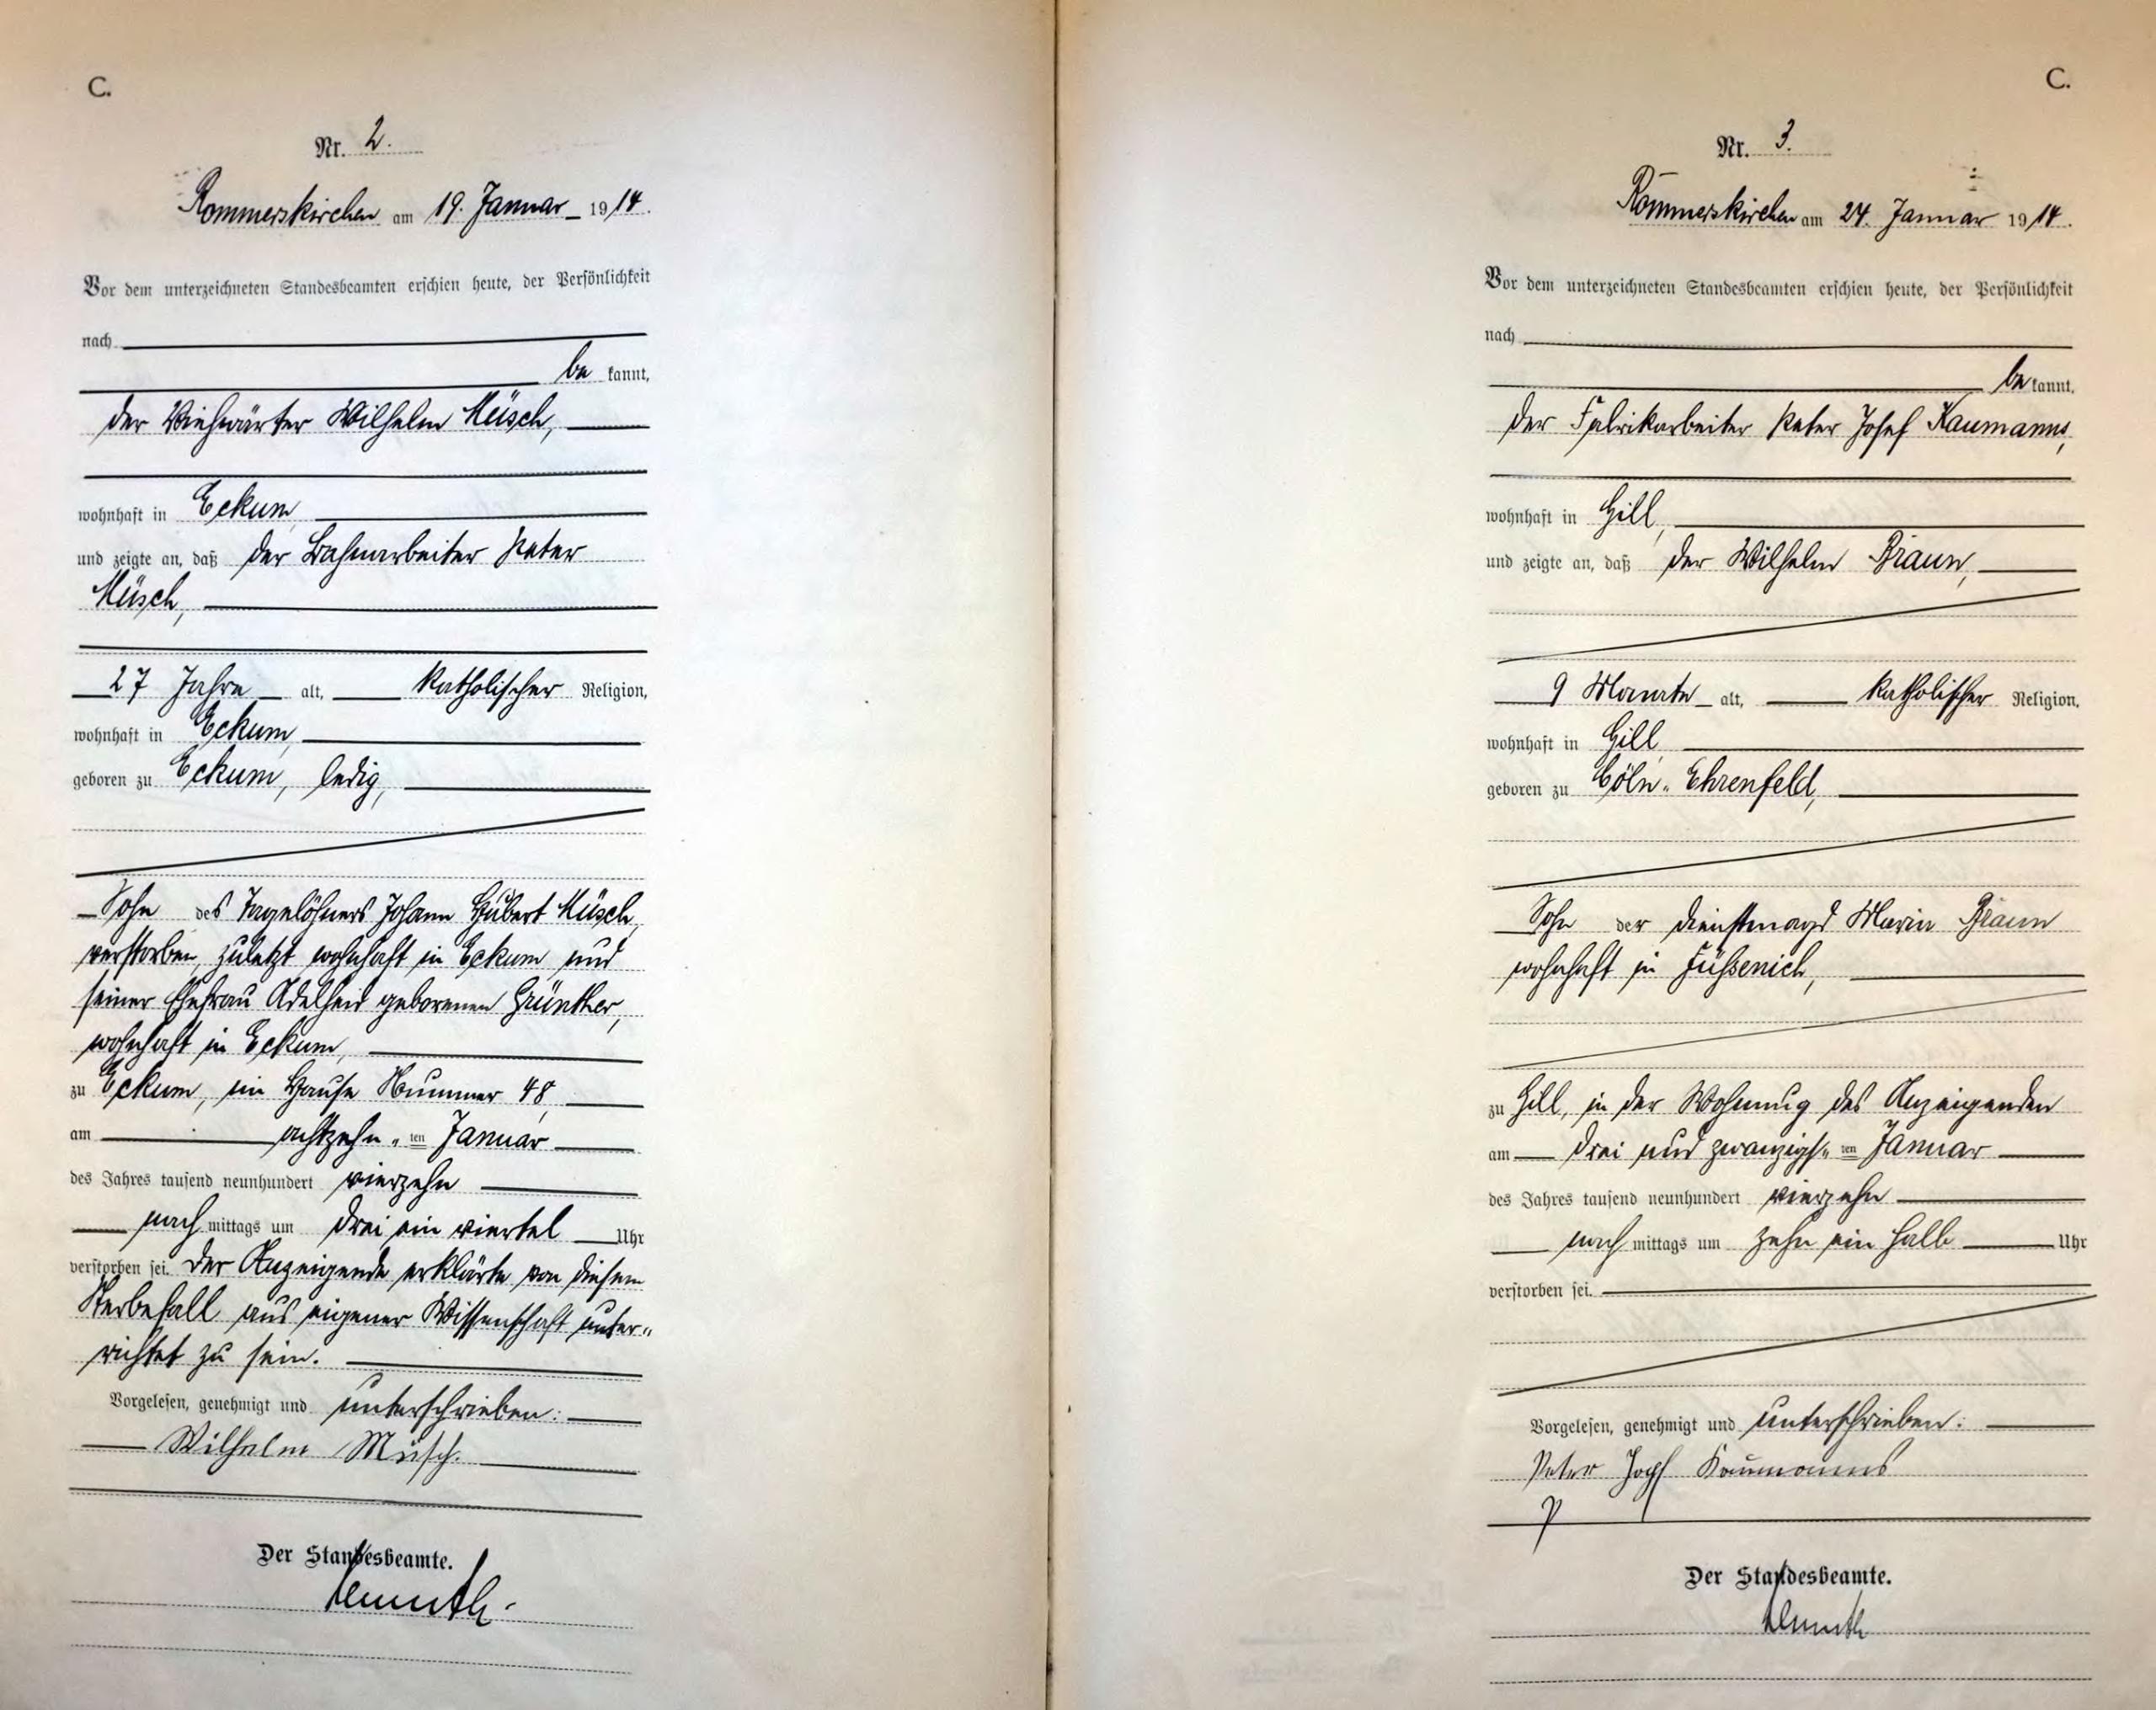 C.
Nr. 2.
Rommerskirchen am 19. Januar 1914.
Vor dem unterzeichneten Standesbeamten erschien heute, der Persönlichkeit
nach
be kannt,
der Viehwärter Wilhelm Müsch,
wohnhaft in Eckum
und zeigte an, daß der Bahnarbeiter Peter
Müsch,
27 Jahre alt, katholischer Religion,
wohnhaft in Eckum,
geboren zu Eckum, ledig,
Sohn des Tagelöhners Johann Hubert Müsch,
verstorben, zuletzt wohnhaft in Eckum und
seiner Ehefrau Adelheid geborenen Günther,
wohnhaft in Eckum,
zu Eckum, im Hause Nummer 48,
am achtzehn ten Januar
des Jahres tausend neunhundert vierzehn
nach mittags um drei ein viertel Uhr
verstorben sei. Der Anzeigende erklärte von diesem
Sterbefall aus eigener Wissenschaft unter-
richtet zu sein.
Vorgelesen, genehmigt und unterschrieben:
Wilhelm Müsch.
Der Standesbeamte.
C.
Nr. 3.
Rommerskirchen am 24. Januar 1914.
Vor dem unterzeichneten Standesbeamten erschien heute, der Persönlichkeit
nach
be kannt,
der Fabrikarbeiter Peter Josef Kaumanns,
wohnhaft in Gill,
und zeigte an, daß der Wilhelm Braun,
9 Monate alt, katholischer Religion,
wohnhaft in Gill
geboren zu Cöln-Ehrenfeld,
Sohn der Dienstmagd Maria Braun
wohnhaft in Füssenich,
zu Gill, in der Wohnung des Anzeigenden
am drei und zwanzigs ten Januar
des Jahres tausend neunhundert vierzehn
nach mittags um zehn ein halb Uhr
verstorben sei.
Vorgelesen, genehmigt und unterschrieben:
Peter Josef Kaumanns
Der Standesbeamte.